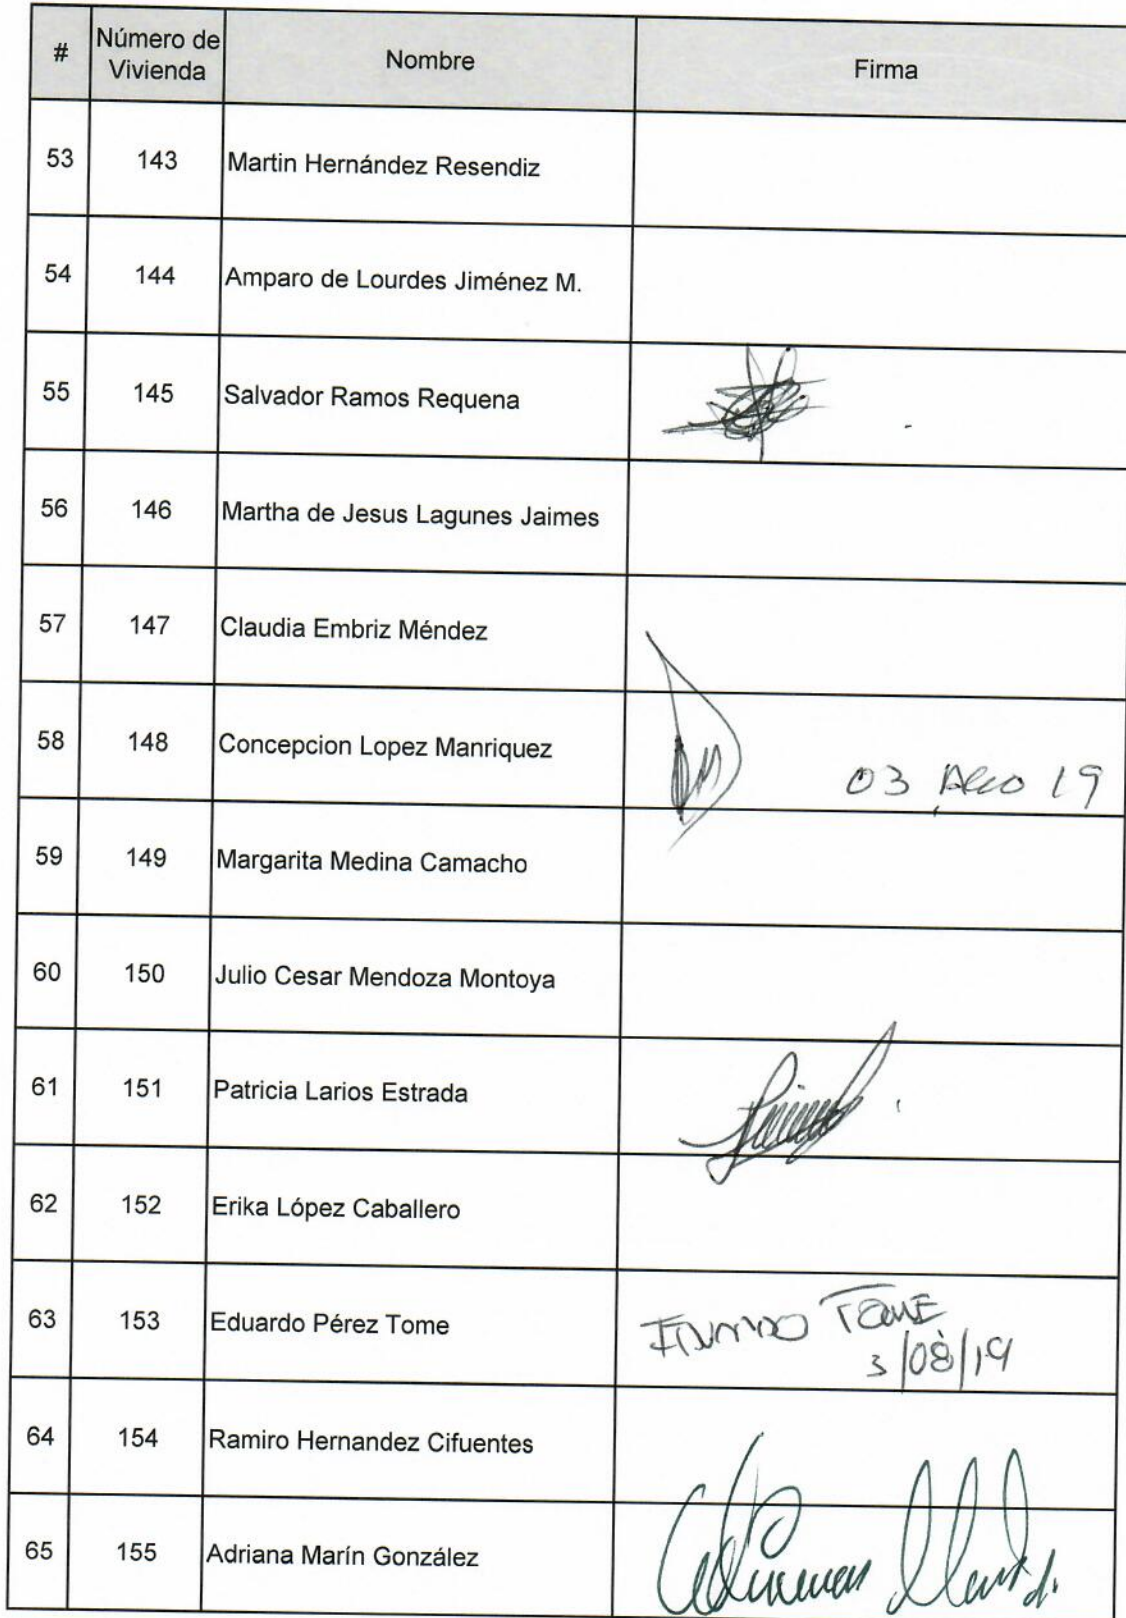 # Número de Vivienda Nombre Firma
53 143 Martin Hernández Resendiz
54 144 Amparo de Lourdes Jiménez M.
55 145 Salvador Ramos Requena
56 146 Martha de Jesus Lagunes Jaimes
57 147 Claudia Embriz Méndez
58 148 Concepcion Lopez Manriquez 03 AGO 19
59 149 Margarita Medina Camacho
60 150 Julio Cesar Mendoza Montoya
61 151 Patricia Larios Estrada
62 152 Erika López Caballero
63 153 Eduardo Pérez Tome TOME
3/08/19
64 154 Ramiro Hernandez Cifuentes
65 155 Adriana Marín González